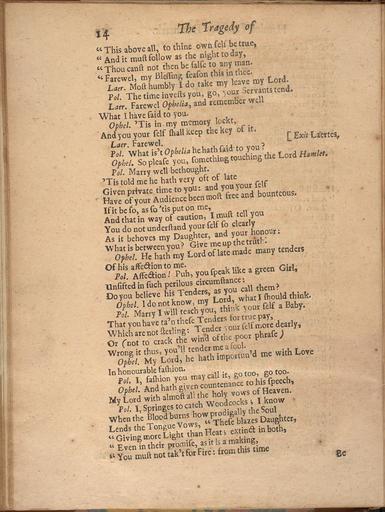 14 The Tragedy of
“ This above all, to thine own ſelf be true,
“ And it muſt follow as the night to day,
“ Thou canſt not then be falſe to any man.
“ Farewel, my Bleſſing ſeaſon this in thee.
Laer. Moſt humbly I do take my leave my Lord.
Pol. The time inveſts you, go, your Servants tend.
Laer. Farewel Ophelia, and remember well
What I have ſaid to you.
Ophel. 'Tis in my memory lockt,
And you your ſelf ſhall keep the key of it.
Laer. Farewel. [ Exit Laertes,
Pol. What is't Ophelia he hath ſaid to you?
Ophel. So pleaſe you, ſomething touching the Lord Hamlet.
Pol. Marry well bethought.
'Tis told me he hath very oft of late
Given private time to you: and you your ſelf
Have of your Audience been moſt free and bounteous.
If it be ſo, as ſo 'tis put on me,
And that in way of caution, I muſt tell you
You do not underſtand your ſelf ſo clearly
As it behoves my Daughter, and your honour:
What is between you? Give me up the truth.
Ophel. He hath my Lord of late made many tenders
Of his affection to me.
Pol. Affection! Puh, you ſpeak like a green Girl,
Unſifted in ſuch perilous circumſtance:
Do you believe his Tenders, as you call them?
Ophel. I do not know, my Lord, what I ſhould think.
Pol. Marry I will teach you, think your ſelf a Baby.
That you have ta'n theſe Tenders for true pay,
Which are not ſterling: Tender your ſelf more dearly,
Or (not to crack the wind of the poor phraſe)
Wrong it thus, you'll tender me a fool.
Ophel. My Lord, he hath importun'd me with Love
In honourable faſhion.
Pol. I, faſhion you may call it, go too, go too.
Ophel. And hath given countenance to his ſpeech,
My Lord with almoſt all the holy vows of Heaven.
Pol. I, Springes to catch Woodcocks; I know
When the Blood burns how prodigally the Soul
Lends the Tongue Vows, “ Theſe blazes Daughter,
“ Giving more Light than Heat; extinct in both,
“ Even in their promiſe, as it is a making,
“ You muſt not tak't for Fire: from this time
Be